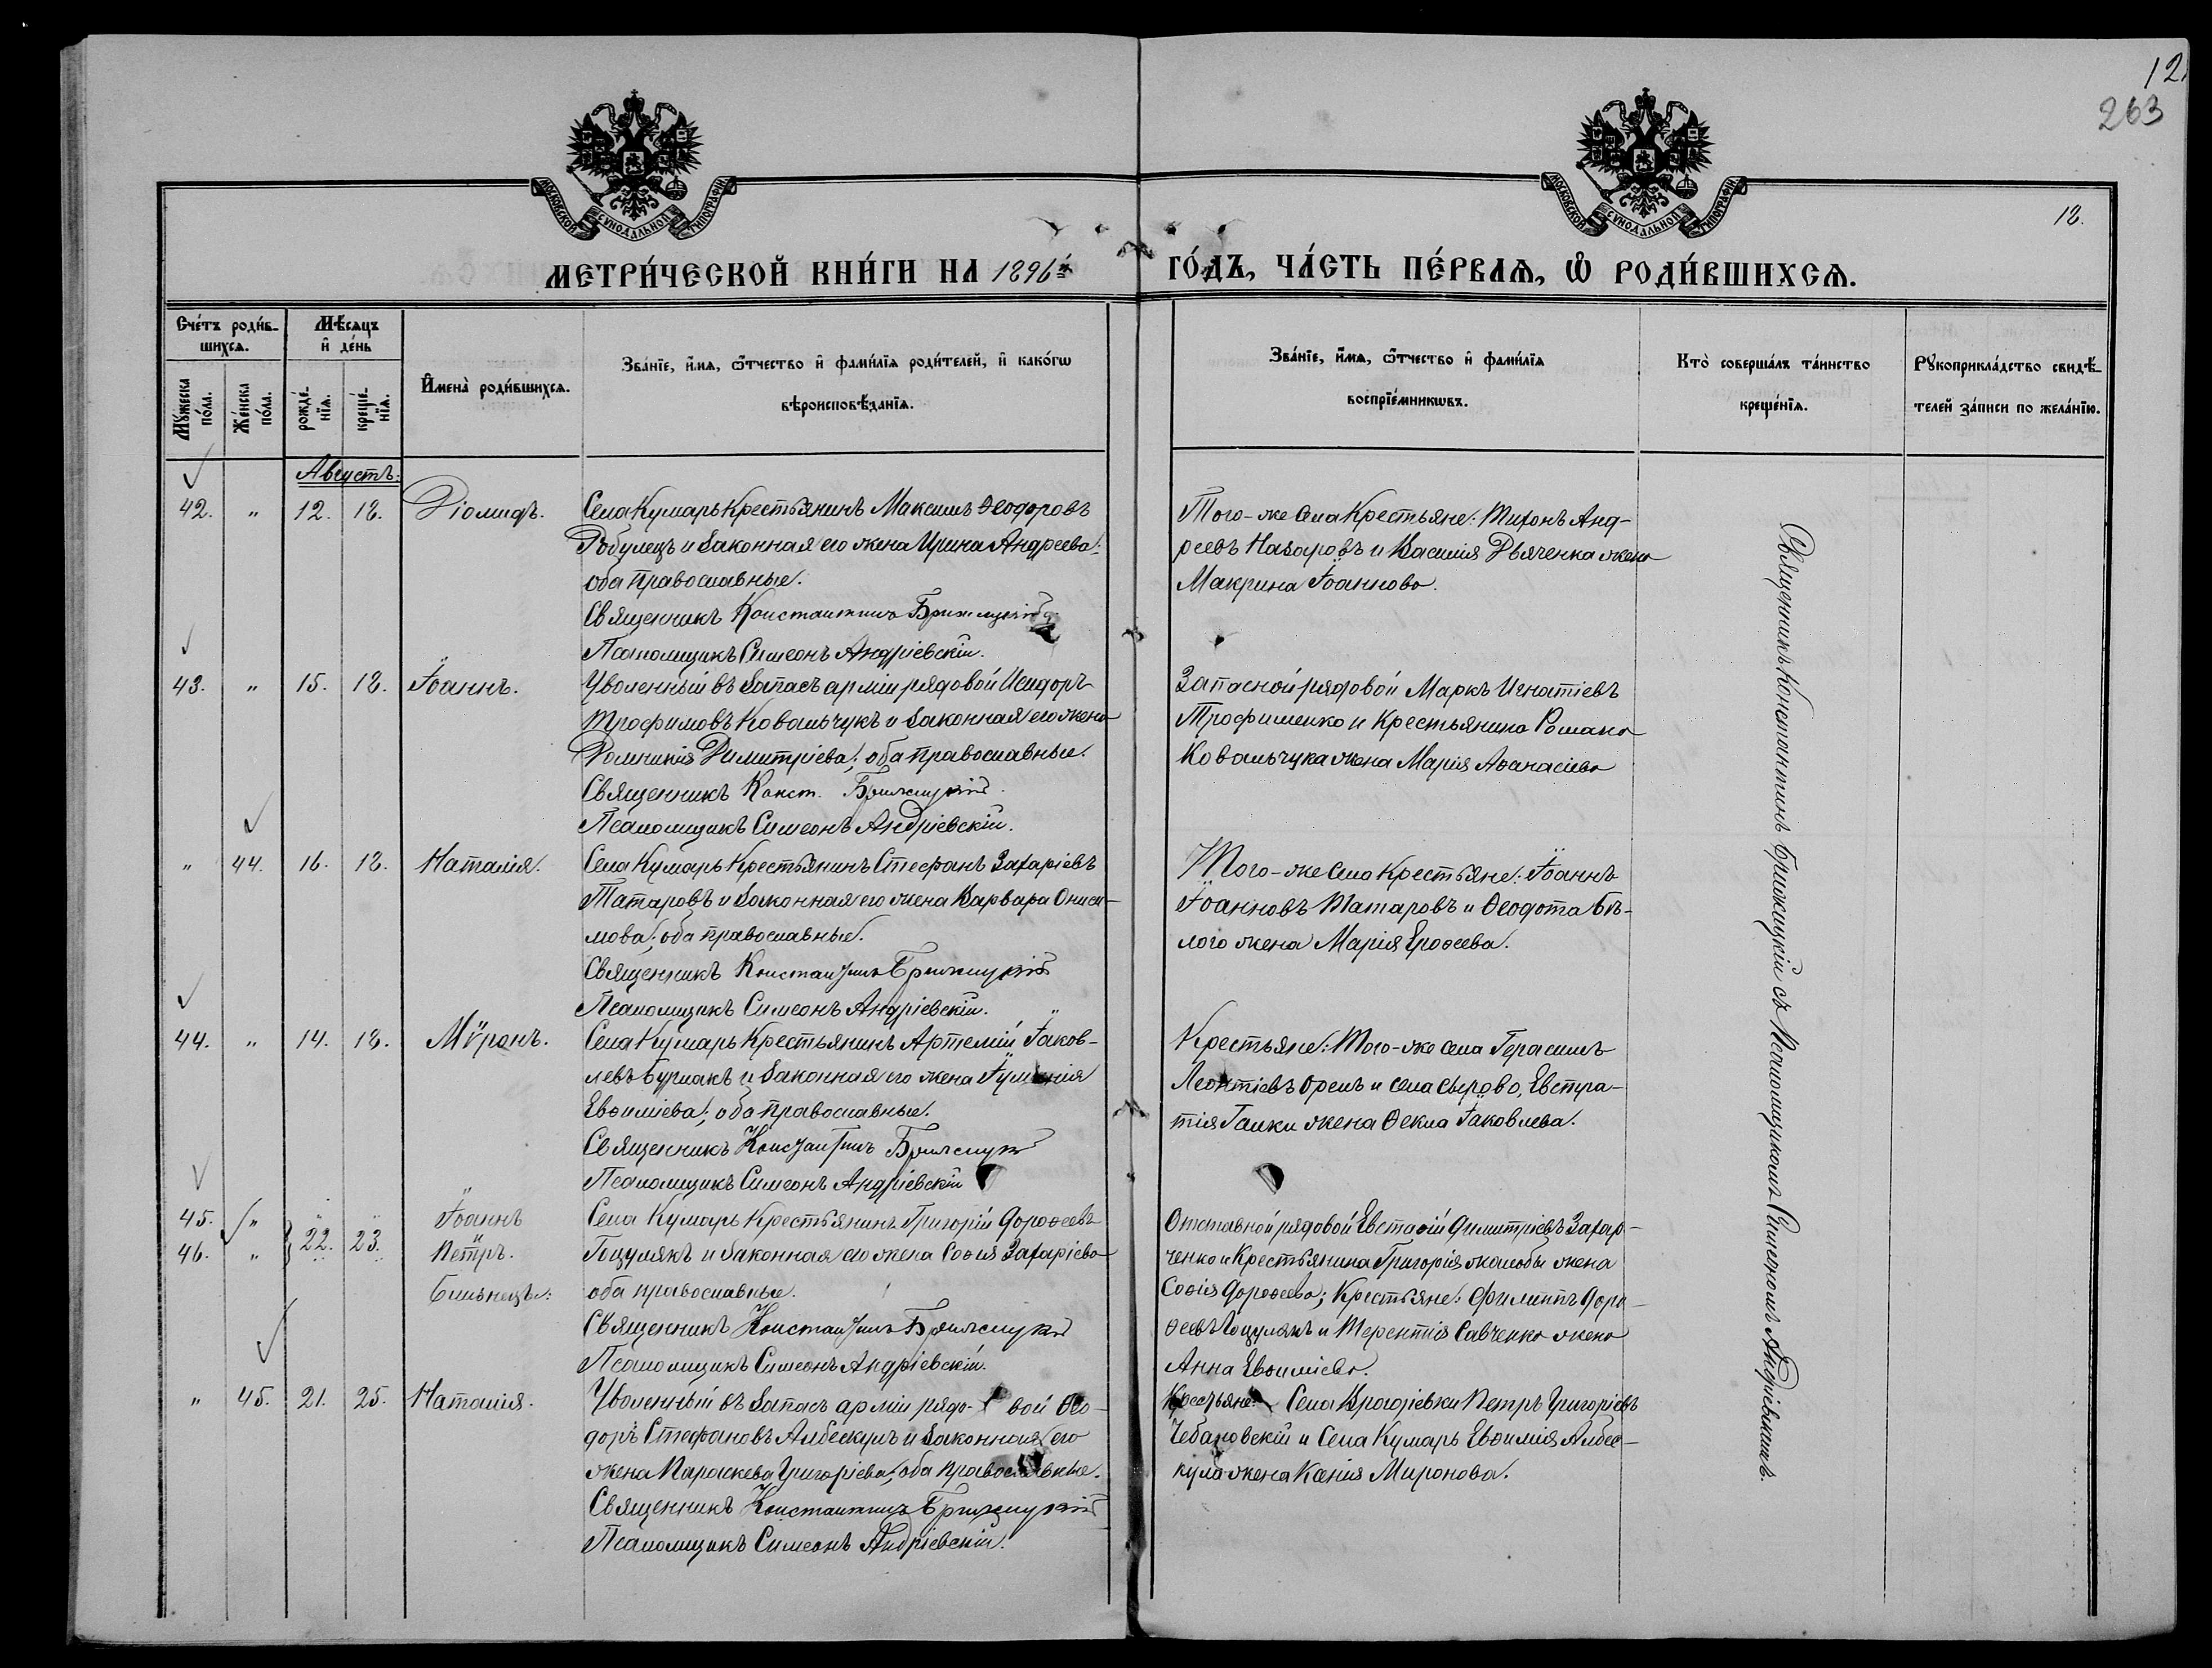 12
263
МОСКОВСКОЙ СѴНОДАЛЬНОЙ ТИПОГРАФІИ
МОСКОВСКОЙ СѴНОДАЛЬНОЙ ТИПОГРАФІИ
12.
МЕТРИ́ЧЕСКОЙ КНИ́ГИ НА 1896й
ГО́ДЪ, ЧА́СТЬ ПЕ́РВАѦ, Ѽ РОДИ́ВШИХСѦ.
Сче́тъ роди́в-
шихсѧ.
Мѣ́сѧцъ
и҆ де́нь
Мꙋ́жеска по́ла.
Же́нска по́ла.
рожде́-
нїѧ.
креще́-
нїѧ.
И҆мена̀ роди́вшихсѧ.
Зва́нїе, и҆́мѧ, ѻ҆́тчество и҆ фами́лїѧ роди́телей, и҆ како́гѡ
вѣроисповѣ́данїѧ.
Зва́нїе, и҆́мѧ, ѻ҆́тчество и҆ фами́лїѧ
воспрїе́мникѡвъ.
Кто̀ соверша́лъ та́инство
креще́нїѧ.
Рꙋкоприкла́дство свидѣ́-
телей за́писи по жела́нїю.
Августъ:
42. " 12. 18. Діомидъ.
Села Кумарь Крестьянинъ Максимъ Ѳеодоровъ
Робулецъ и законная его жена Ирина Андреева;
оба православные.
Священникъ Константинъ Брижицкій
Псаломщикъ Симеонъ Андріевскій.
Того-же села Крестьяне: Тихонъ Анд-
реевъ Назаровъ и Василія Дьяченка жена
Макрина Іоаннова.
43. " 15. 18. Іоаннъ.
Уволенный въ запасъ арміи рядовой Исидоръ
Трофимовъ Ковальчукъ и законная его жена
Домникія Димитріева; оба православные.
Священникъ Конст. Брижицкій.
Псаломщикъ Симеонъ Андріевскій.
Запасной рядовой Маркъ Игнатіевъ
Трофименко и Крестьянина Романа
Ковальчука жена Марія Аѳанасіева
" 44. 16. 18. Наталія.
Села Кумарь Крестьянинъ Стефанъ Захаріевъ
Татаровъ и законная его жена Варвара Ониси-
мова; оба православные.
Священникъ Константинъ Брижицкій
Псаломщикъ Симеонъ Андріевскій.
Того-же села Крестьяне: Іоаннъ
Іоанновъ Татаровъ и Ѳеодота Бѣ-
лого жена Марія Ероѳеева.
44. " 14. 18. Мѵронъ.
Села Кумарь Крестьянинъ Артемій Іаков-
левъ Бурлакъ и законная его жена Іуліанія
Евѳиміева; оба православные.
Священникъ Константинъ Брижицкій
Псаломщикъ Симеонъ Андріевскій
Крестьяне: Того-же села Герасимъ
Леонтіевъ Орелъ и села Сырово, Евстра-
тія Галки жена Ѳекла Іаковлева.
45. " Іоаннъ
46. " 22. 23. Петръ.
Близнецы:
Села Кумарь Крестьянинъ Григорій Дороѳеевъ
Гоцулякъ и законная его жена Софія Захаріева
оба православные.
Священникъ Константинъ Брижицкій
Псаломщикъ Симеонъ Андріевскій.
Отставной рядовой Евстафій Димитріевъ Захар-
ченко и Крестьянина Григорія жалобы жена
Софія Дороѳеева; Крестьяне: Филиппъ Доро-
ѳеевъ Гоцулякъ и Терентія Савченка жена
Анна Евѳиміева.
" 45. 21. 25. Наталія.
Уволенный въ запасъ арміи рядо- вой Ѳео-
доръ Стефановъ Албескулъ и законная его
жена Параскева Григоріева; оба православные.
Священникъ Константинъ Брижицкій
Псаломщикъ Симеонъ Андріевскій.
Крестьяне: Села Врадіевки Петръ Григоріевъ
Чебановскій и Села Кумарь Евѳимія Албес-
кула жена Ксенія Миронова.
Священникъ Константинъ Брижицкій съ Псаломщикомъ Симеономъ Андріевскимъ.